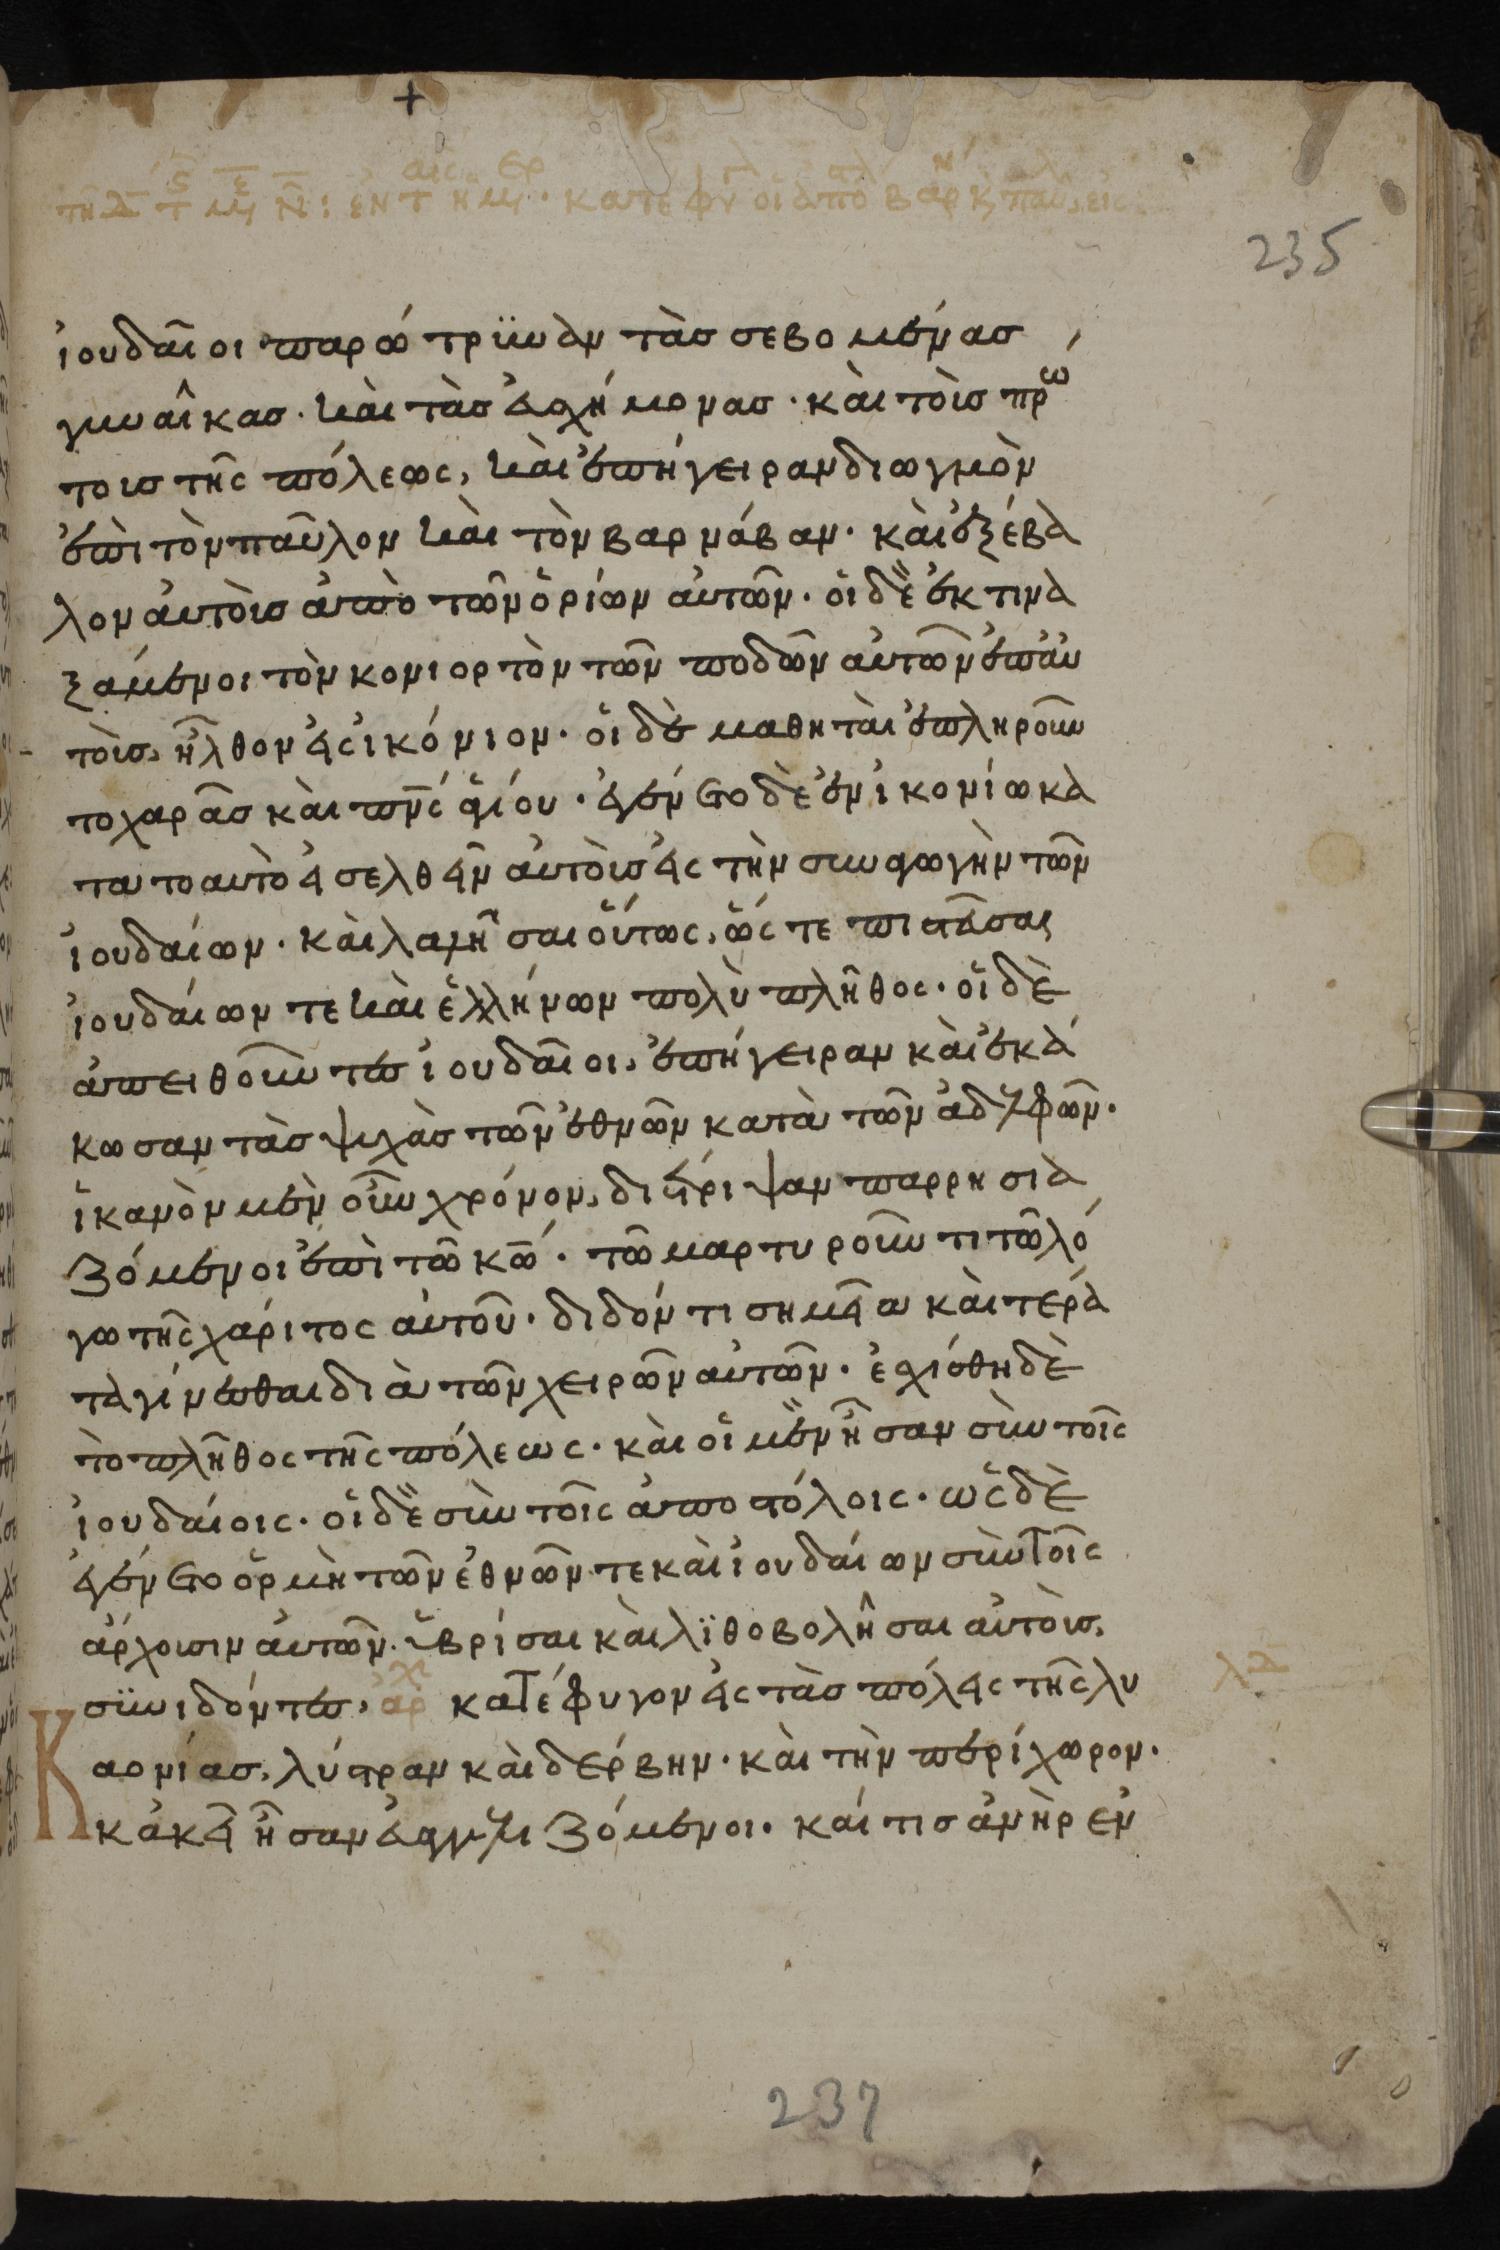 235
ἰουδαῖοι παρώτρϋναν τὰς σεβομένας
γυναῖκας· καὶ τὰς εὐσχήμονας· καὶ τοὺς πρώ
τους τῆς πόλεως, καὶ ἐπήγειραν διωγμὸν
ἐπὶ τὸν παῦλον καὶ τὸν βαρνάβαν· καὶ ἐξέβα
λον αὐτοὺς ἀπὸ τῶν ὁρίων αὐτῶν· οἱ δὲ ἐκτινα
ξάμενοι τὸν κονιορτὸν τῶν ποδῶν αὐτῶν ἐπ' αὐ
τοὺς, ἦλθον εἰς ἰκόνιον· οἱ δὲ μαθηταὶ ἐπληροῦν
το χαρᾶς καὶ πνς ἁγίου· ἐγένετο δὲ ἐν ἰκονίω κα
τα τὸ αυτὸ εἰσελθεῖν αὐτοὺς εἰς τὴν συναγωγὴν τῶν
ἰουδαίων· καὶ λαλῆσαι οὕτως, ὥς τε πιστεῦσαι
ἰουδαίων τε καὶ ἑλλήνων πολὺ πλῆθος· οἱ δὲ
ἀπειθοῦντες ἰουδαῖοι, ἐπήγειραν καὶ ἐκά
κωσαν τὰς ψυχὰς τῶν ἐθνῶν κατὰ τῶν ἀδελφῶν·
ἱκανὸν μὲν οὖν χρόνον, διέτριψαν παρρησια
ζόμενοι ἐπὶ τῶ κῶ· τῶ μαρτυροῦντι τῶ λό
γω τῆς χάριτος αὐτοῦ· διδόντι σημεῖα καὶ τέρα
τα γίνεσθαι διὰ τῶν χειρῶν αὐτῶν· ἐσχίσθη δὲ
τὸ πλῆθος τῆς πόλεως· καὶ οἱ μὲν ἦσαν σὺν τοῖς
ἰουδαίοις· οἱ δὲ σὺν τοῖς ἀποστόλοις· ὡς δὲ
ἐγένετο ὁρμὴ τῶν ἐθνῶν τε καὶ ἰουδαίων σὺν τοῖς
ἄρχουσιν αὐτῶν· ὑβρίσαι καὶ λϊθοβολῆσαι αὐτοὺς,
σϋνιδόντες, ἀρχ κατέφυγον εἰς τὰς πόλεις τῆς λυ
καονίας, λύστραν καὶ δέρβην· καὶ τὴν περίχωρον·
κἀκεῖ ἦσαν εὐαγγελιζόμενοι· καί τις ἀνὴρ ἐν
237